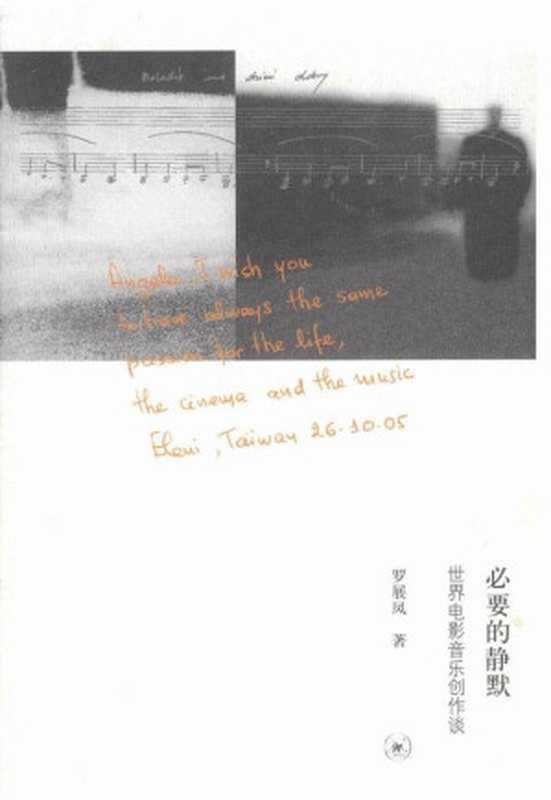 Angela, I wish you
to have always the same
passion for the life,
the cinema and the music
Eleni, Taiwan 26.10.05
必要的静默
世界电影音乐创作谈
罗展凤 著